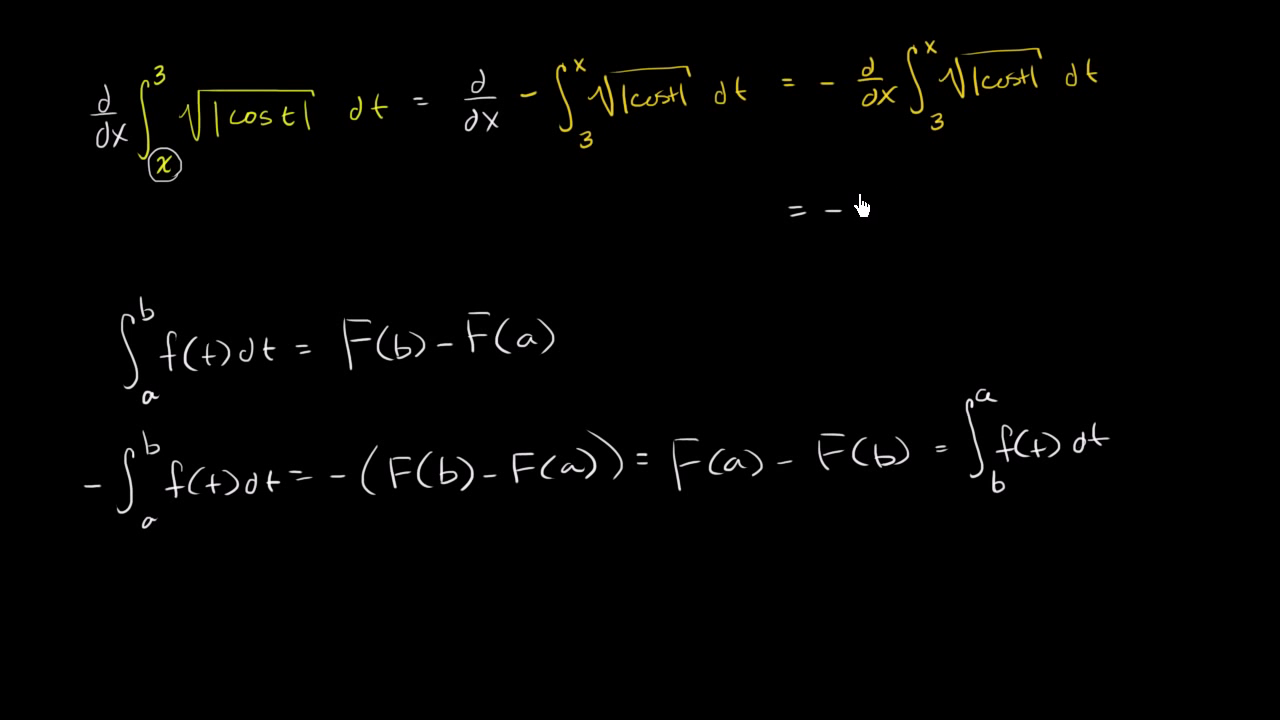 d/dx ∫_x^3 √|cos t| dt = d/dx - ∫_3^x √|cost| dt = - d/dx ∫_3^x √|cost| dt
= -
∫_a^b f(t)dt = F(b) - F(a)
- ∫_a^b f(t)dt = - (F(b) - F(a)) = F(a) - F(b) = ∫_b^a f(t) dt